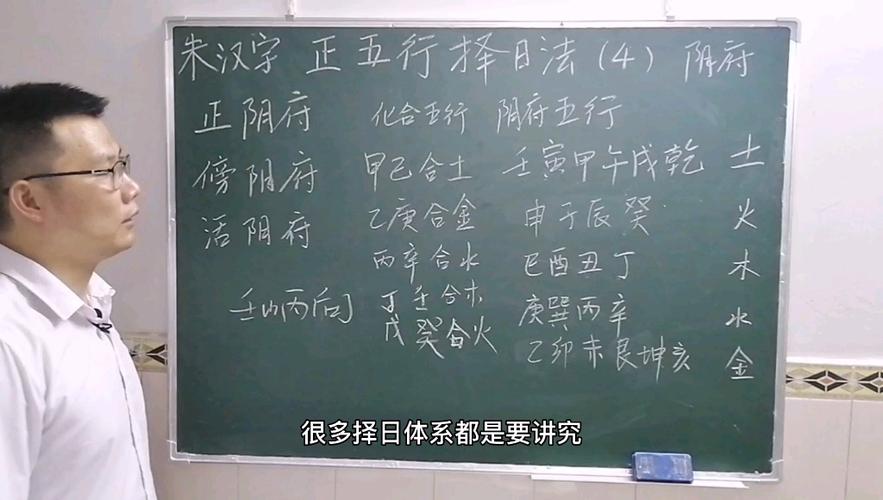 朱汉字 正五行择日法(4) 阴府
正阴府 化合五行 阴府五行
傍阴府 甲己合土 壬寅甲午戌乾 土
活阴府 乙庚合金 申子辰癸 火
丙辛合水 巳酉丑丁 木
壬山丙向 丁壬合木 庚巽丙辛 水
戊癸合火 乙卯未艮坤亥 金
很多择日体系都是要讲究